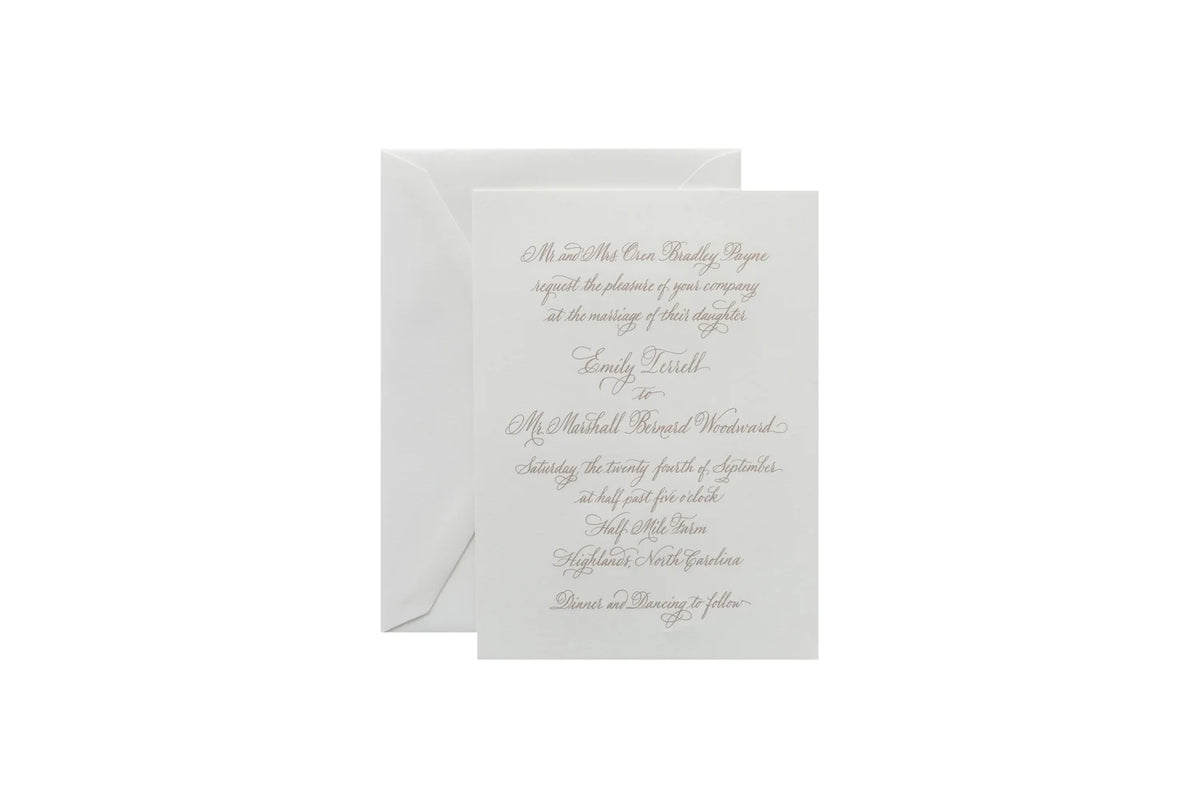 Mr. and Mrs Oren Bradley Payne
request the pleasure of your company
at the marriage of their daughter
Emily Terrell
to
Mr. Marshall Bernard Woodward
Saturday, the twenty fourth of September
at half past five o'clock
Half Mile Farm
Highlands, North Carolina
Dinner and Dancing to follow